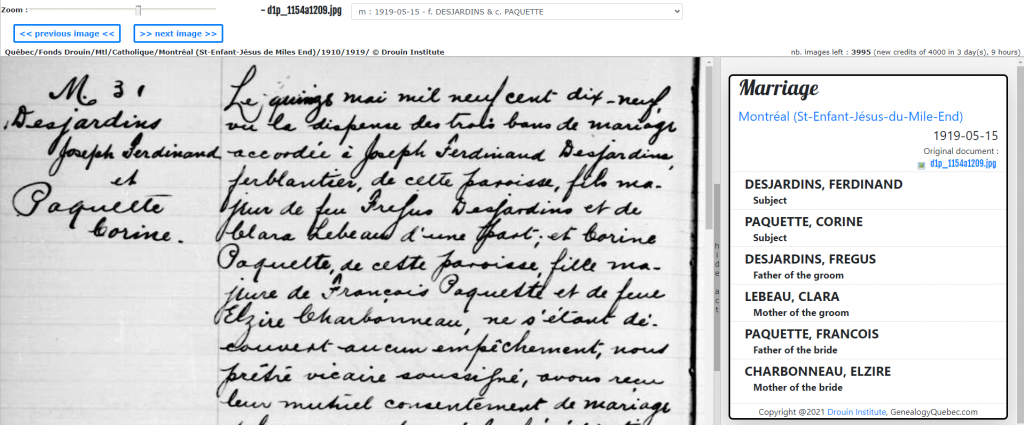 Zoom :
– d1p_1154a1209.jpg
m : 1919-05-15 - f. DESJARDINS & c. PAQUETTE
<< previous image <<
>> next image >>
Québec/Fonds Drouin/Mtl/Catholique/Montréal (St-Enfant-Jésus de Miles End)/1910/1919/ © Drouin Institute
nb. images left : 3995 (new credits of 4000 in 3 day(s), 9 hours)
M. 31
Desjardins
Joseph Ferdinand
et
Paquette
Corine.
Le quinze mai mil neuf cent dix-neuf,
vu la dispense des trois bans de mariage
accordée à Joseph Ferdinand Desjardins,
ferblantier, de cette paroisse, fils ma-
jeur de feu Frefus Desjardins et de
Clara Lebeau d'une part; et Corine
Paquette, de cette paroisse, fille ma-
jeure de François Paquette et de feue
Elzire Charbonneau, ne s'étant dé-
couvert aucun empêchement, nous
prêtre vicaire soussigné, avons reçu
leur mutuel consentement de mariage
hide act
Marriage
Montréal (St-Enfant-Jésus-du-Mile-End)
1919-05-15
Original document :
d1p_1154a1209.jpg
DESJARDINS, FERDINAND
Subject
PAQUETTE, CORINE
Subject
DESJARDINS, FREGUS
Father of the groom
LEBEAU, CLARA
Mother of the groom
PAQUETTE, FRANCOIS
Father of the bride
CHARBONNEAU, ELZIRE
Mother of the bride
Copyright @2021 Drouin Institute, GenealogyQuebec.com